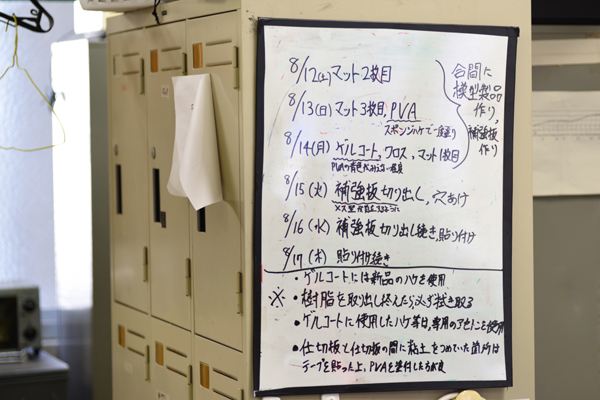 8/12(土) マット2枚目
8/13(日) マット3枚目, PVA
スポンジハケで一度塗り
8/14(月) ゲルコート, クロス, マット1枚目
PVAの青色が
8/15(火) 補強板切り出し, 穴あけ
8/16(水) 補強板切り出し続き, 貼り付け
8/17(木) 貼り付け続き
合間に
模型製品
作り,
補強板
作り
・ゲルコートには新品のハケを使用
※・樹脂を取り出し終えたら必ず拭き取る
・ゲルコートに使用したハケ等は, 専用のアセトンを使用
・仕切板と仕切板の間に粘土をつめていた箇所は
テープを貼った上, PVAを塗付した方が良